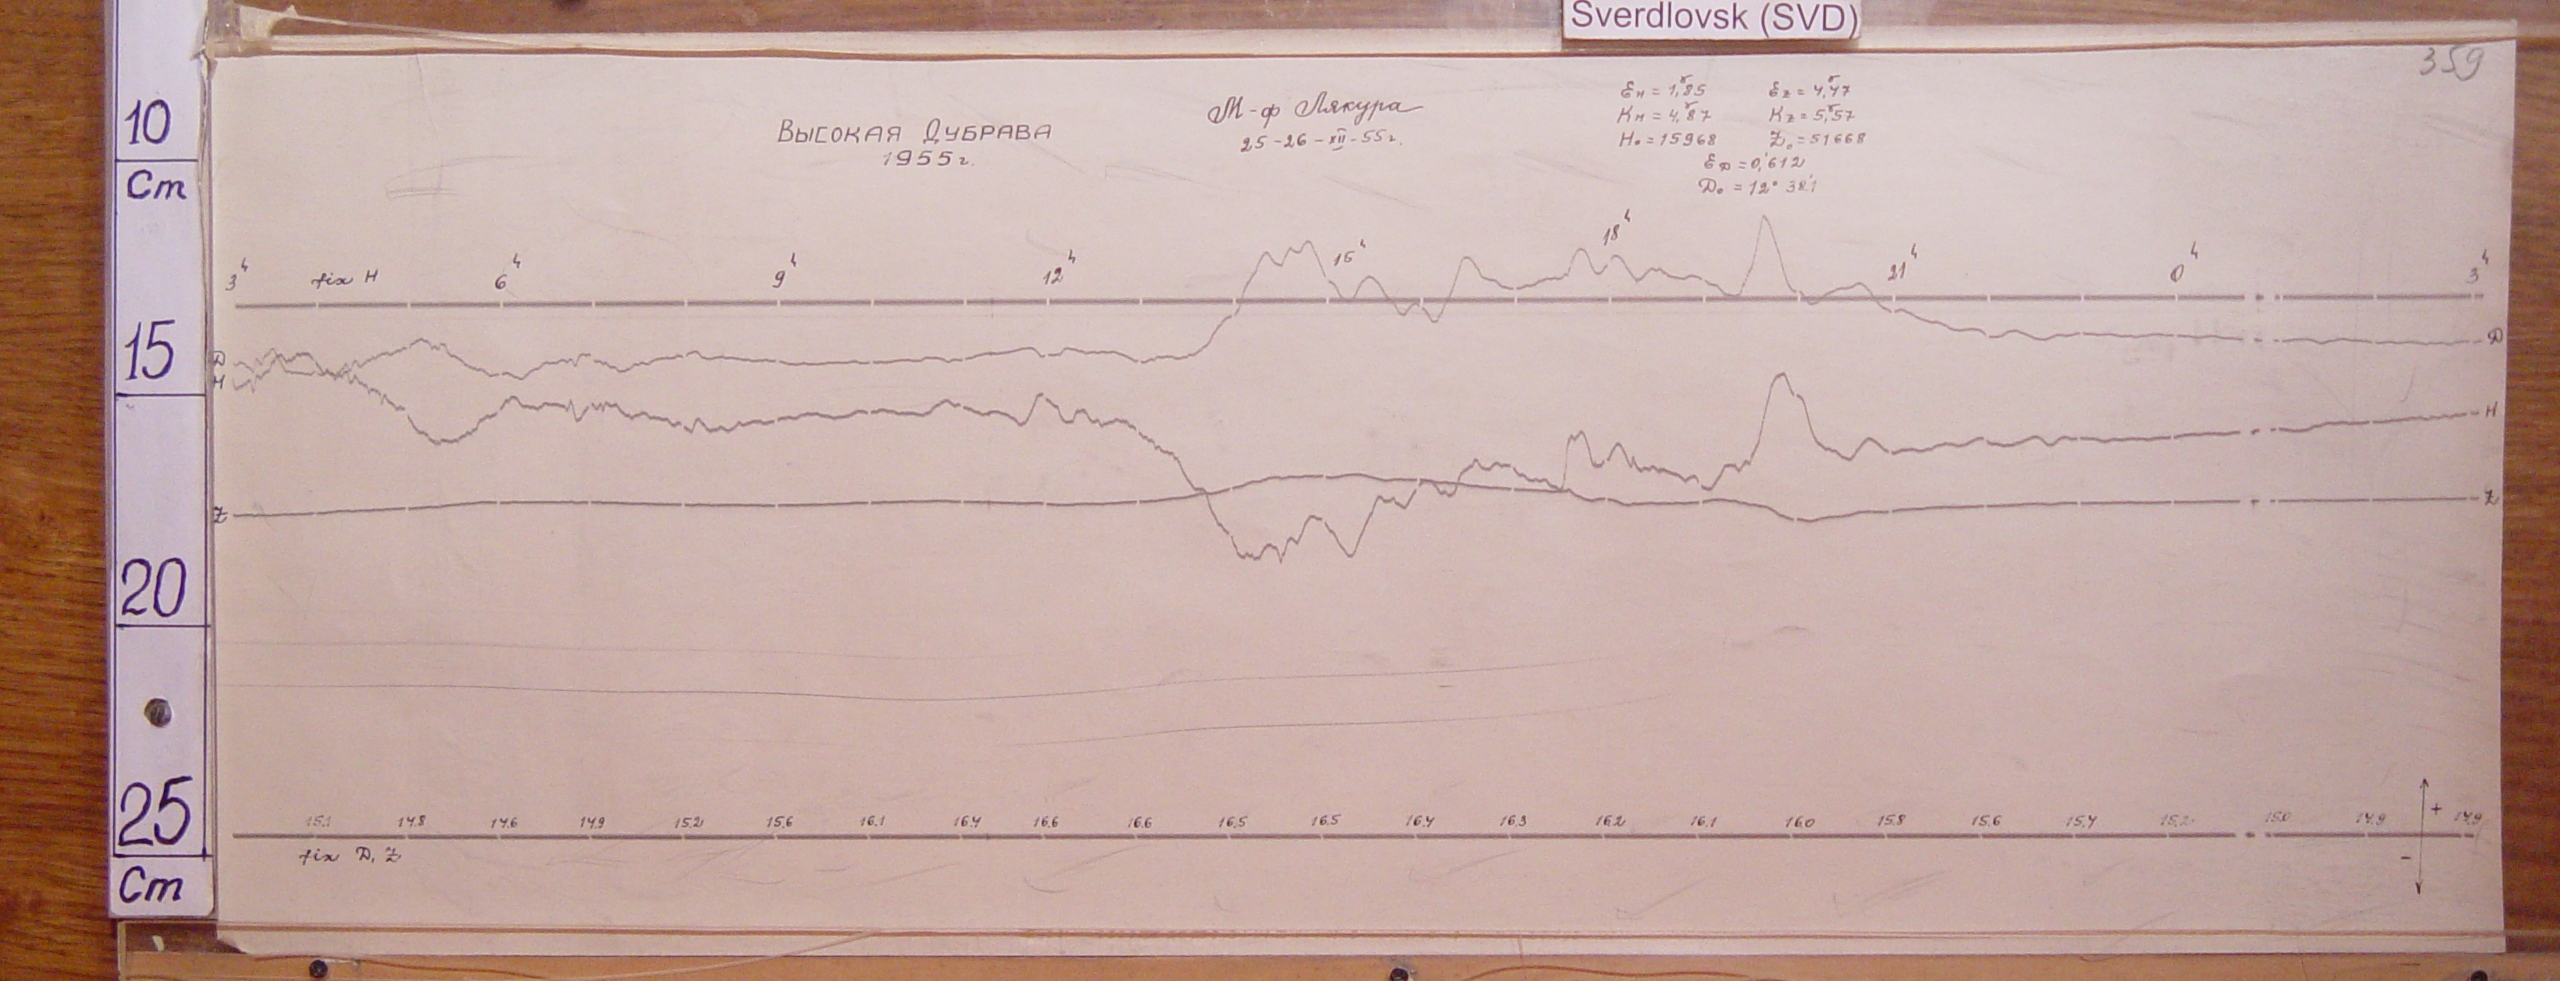 Sverdlovsk (SVD)
359
10
Cm
15
20
25
Cm
Высокая Дубрава
1955 г.
М-ф Лякура
25-26-XII-55 г.
Eн = 1,ᵞ85 Ez = 4,ᵞ47
Kн = 4,ᵞ87 Kz = 5,ᵞ57
H₀ = 15968 Z₀ = 51668
E𝒟 = 0,'612
D₀ = 12° 38,'1
3ʰ fix H 6ʰ 9ʰ 12ʰ 15ʰ 18ʰ 21ʰ 0ʰ 3ʰ
D D
H H
Z Z
15.1 14.8 14.6 14.9 15.2 15.6 16.1 16.4 16.6 16.6 16.5 16.5 16.4 16.3 16.2 16.1 16.0 15.8 15.6 15.4 15.2 15.0 14.9 14.9
+
-
fix D, Z